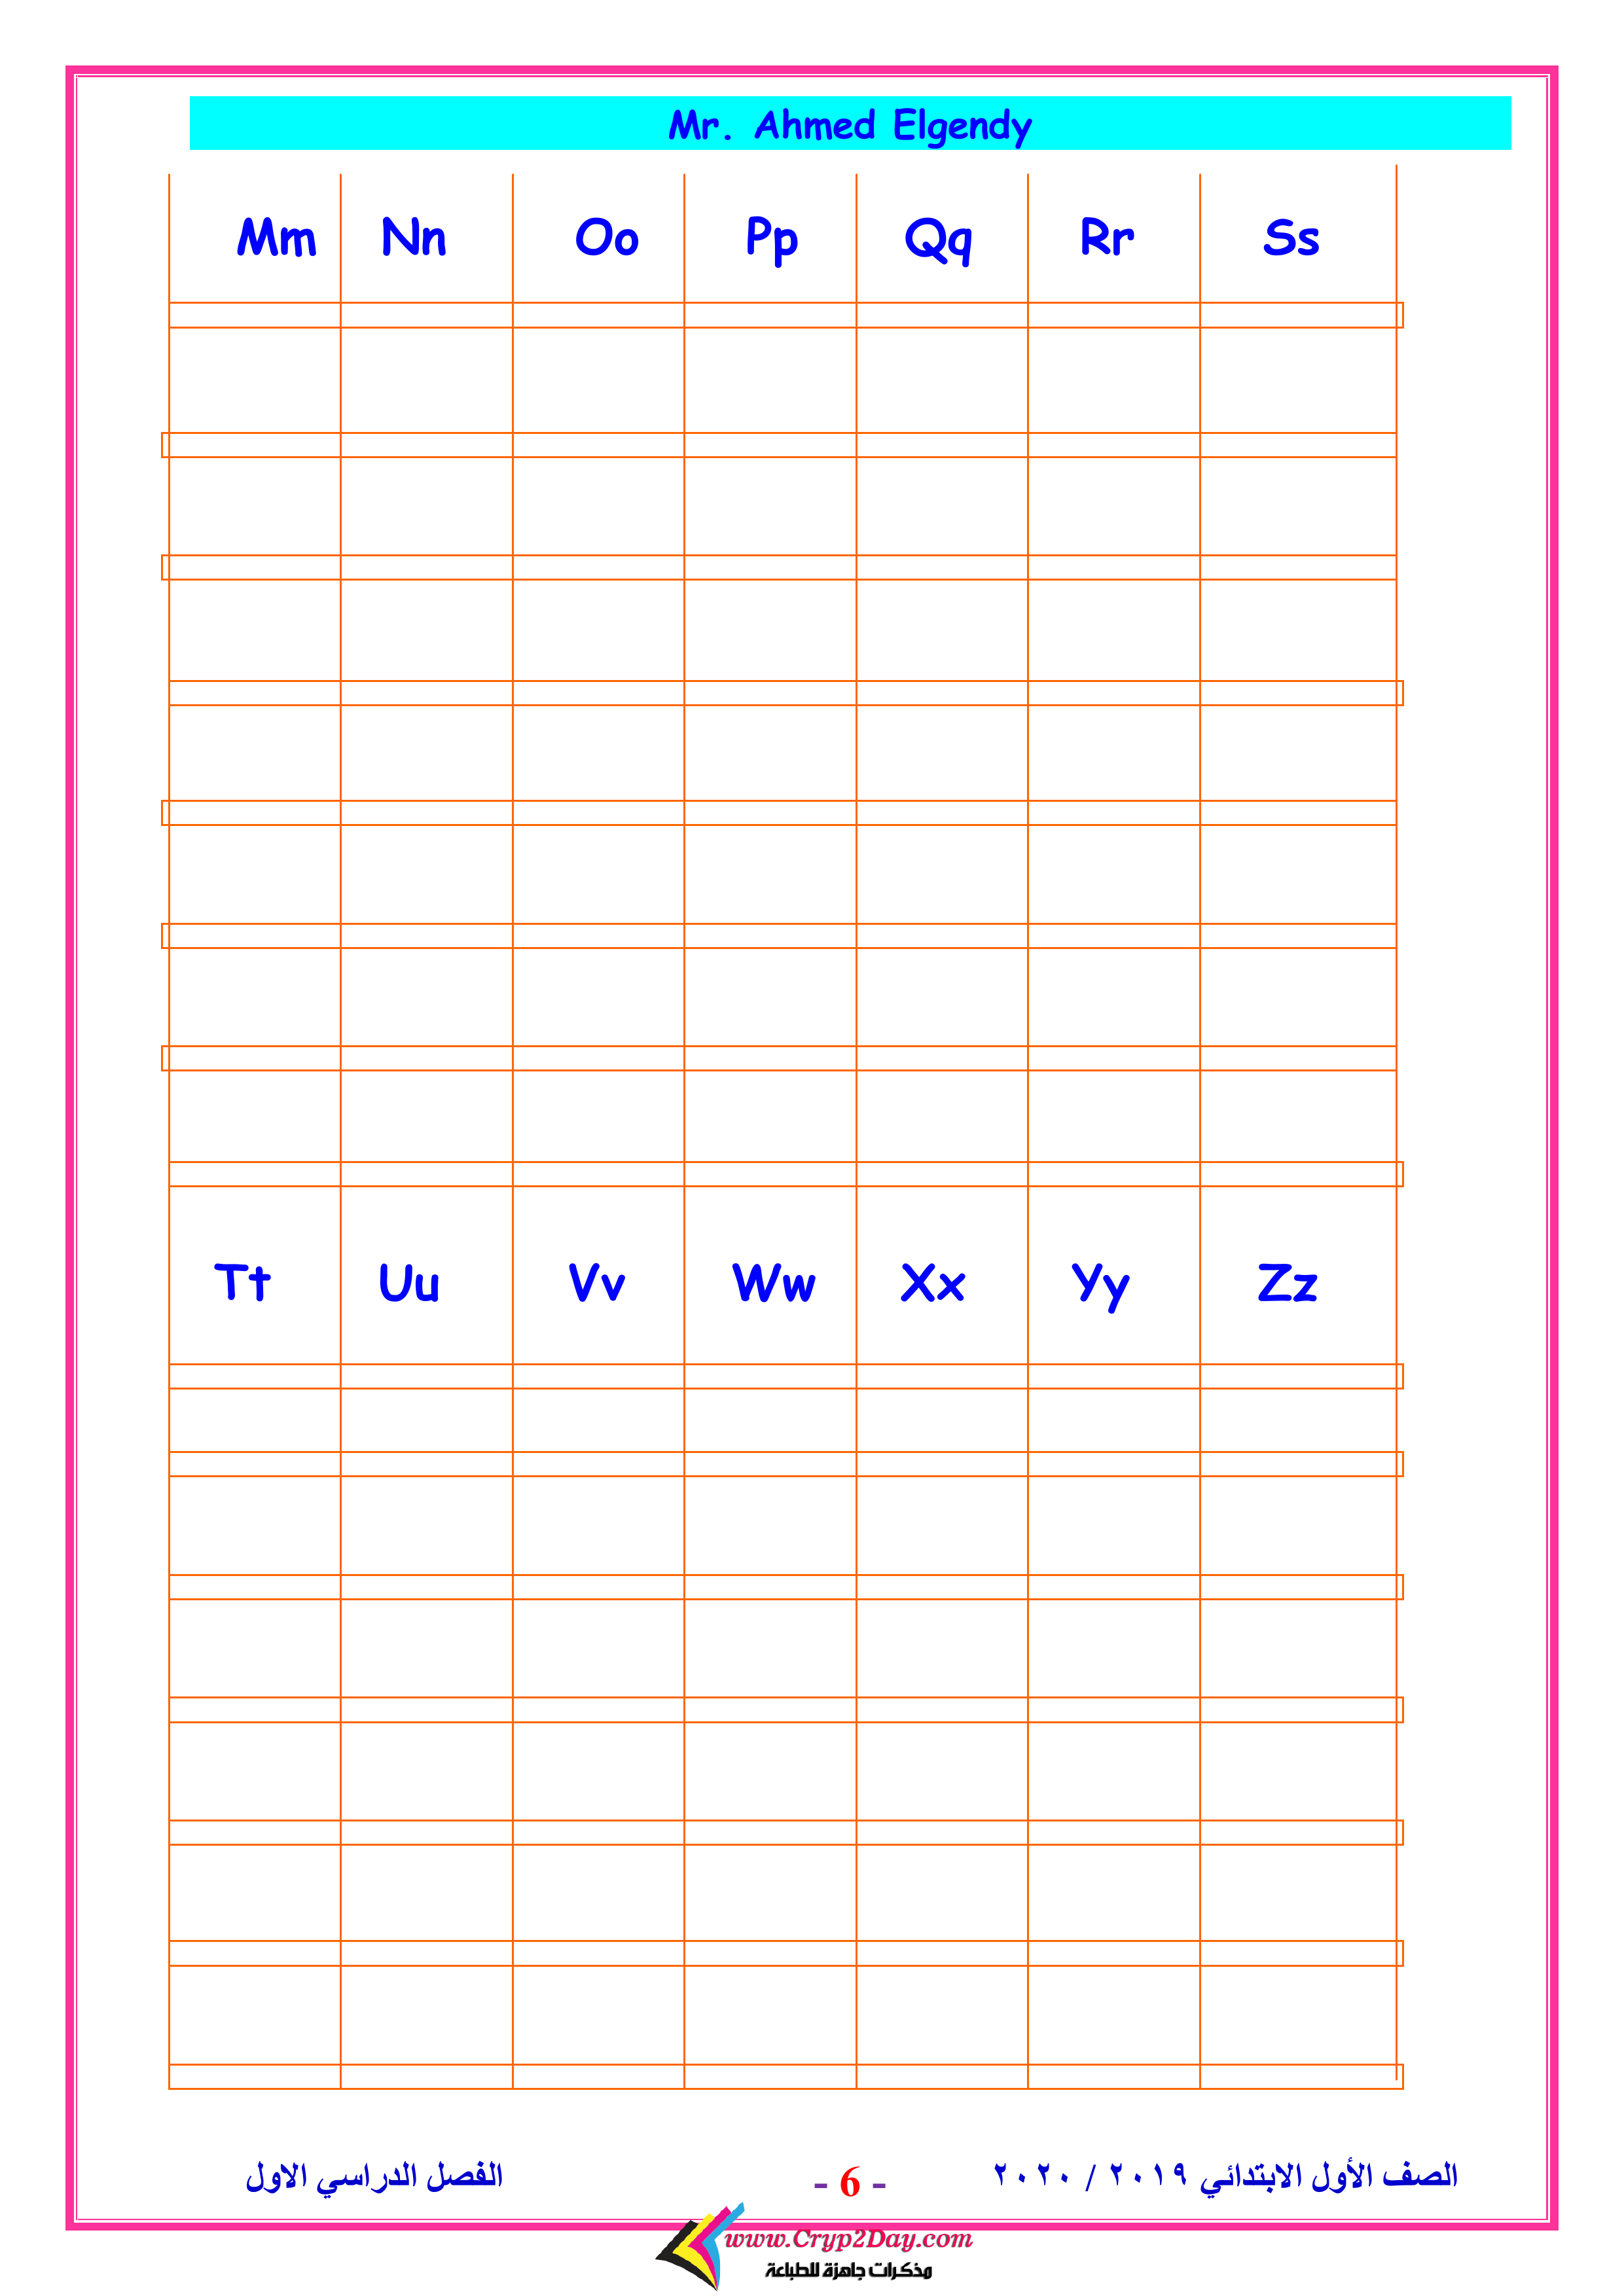 Mr. Ahmed Elgendy
Mm Nn Oo Pp Qq Rr Ss
Tt Uu Vv Ww Xx Yy Zz
الصف الأول الابتدائي ٢٠١٩ / ٢٠٢٠ - 6 - الفصل الدراسي الاول
www.Cryp2Day.com
مذكرات جاهزة للطباعة